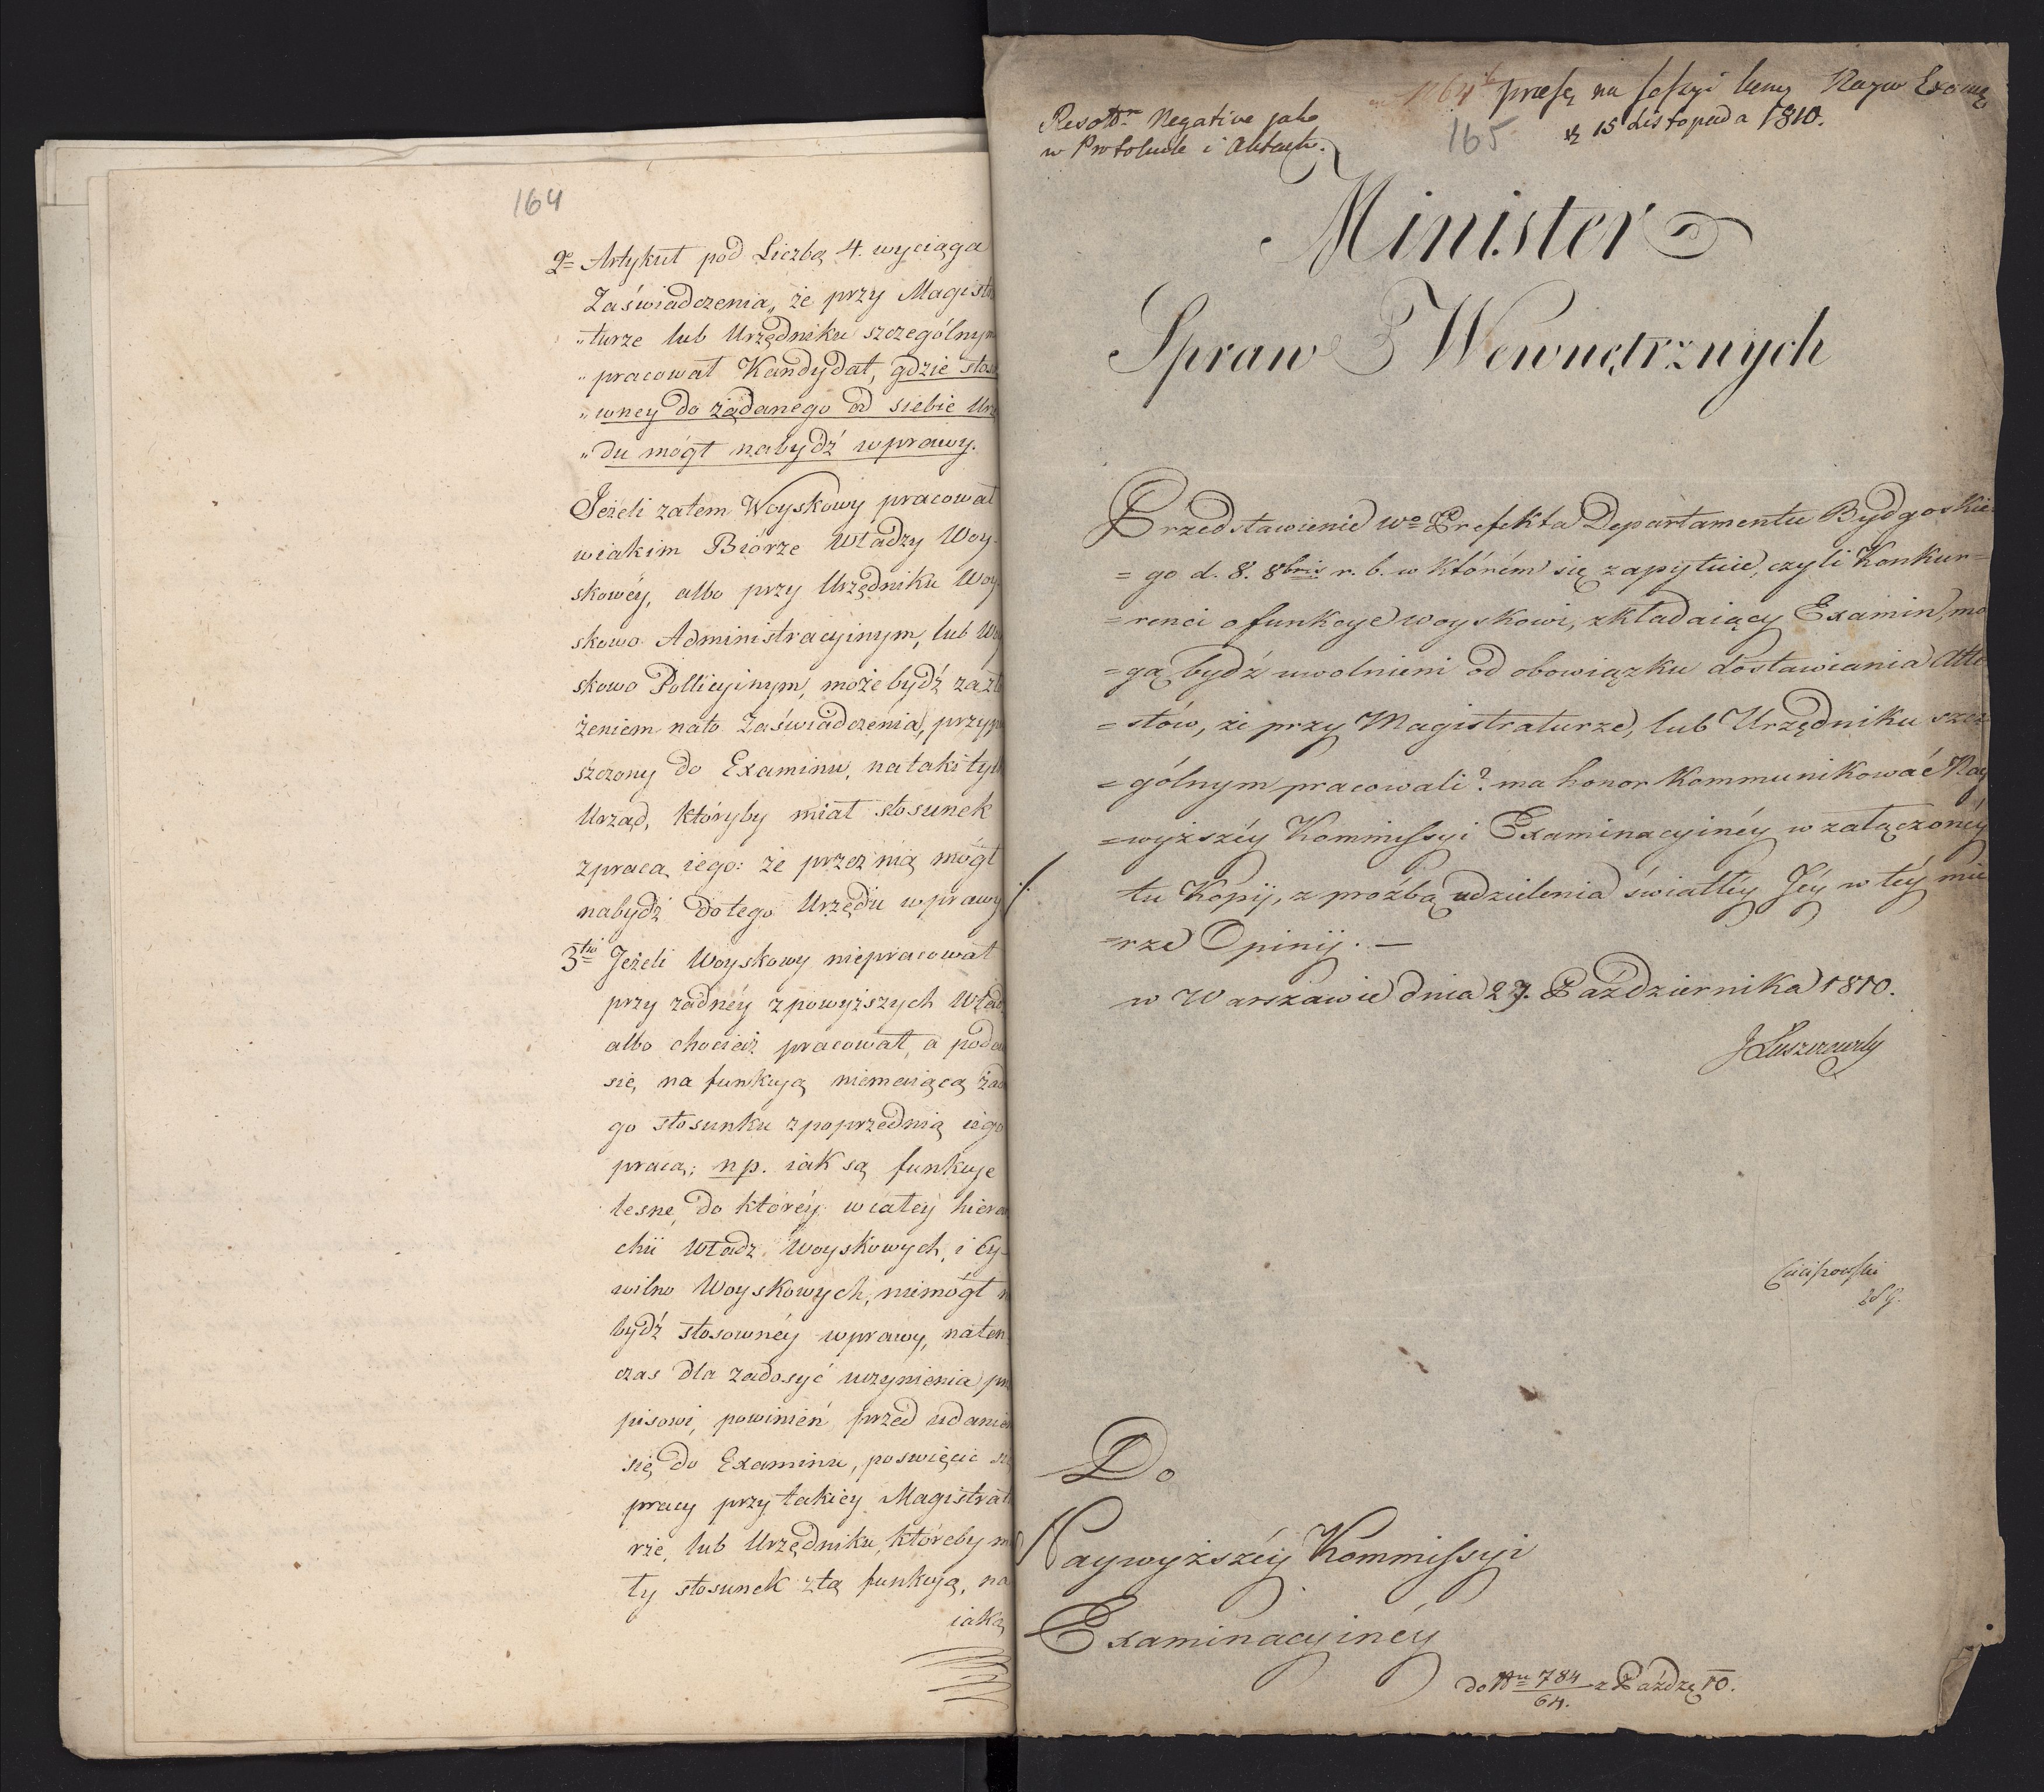 164
2º Artykuł pod Liczbą 4. wyciąga
Zaświadczenia, że przy Magistra
„turze lub Urzędniku szczególnym
„pracował Kandydat, gdzie stoso
„wney do żądanego od siebie Urzę
„du mógł nabydź wprawy.
Jeżeli zatem Woyskowy pracował
wiakim Biórze Władzy Woy-
skowéy, albo przy Urzędniku Woy
skowo Administracyinym, lub Woy
skowo Pollicyinym, może bydź zazło
żeniem nato Zaświadczenia, przypu
szczony do Examinu, natakitylko
Urząd, któryby miał stosunek
zpracą iego: że przez nią mógł
nabydź dotego Urzędu wprawy
3tio Jeżeli Woyskowy niepracował
przy żadnéy zpowyższych Władz
albo chociaż pracował, a poda
się, na funkcyą niemaiącą żadne
go stosunku zpoprzednią iego
pracą; np. iak są funkcye
leśne, do któréy wcałey hierar
chii Władz Woyskowych, i Cy-
wilno Woyskowych, niemógł na
bydź stosownéy wprawy, naten
czas dla zadosyć uczynienia prze
pisowi, powinień przed udaniem
się do Examinu, poswięcic się
pracy przy takiey Magistratu
rze, lub Urzędniku, któreby mia
ły stosunek ztą funkcyą, na
iaką
Resolt. Negative jako
w Protokule i Aktach.
165
praes. na sessyi Nayw Exam
d. 15 Listopada 1810.
Minister
Spraw Wewnętrznych
Przedstawienie Wo Prefekta Departamentu Bydgoskie
=go d. 8. 8bris r. b. w którém się zapytuie, czyli Konkur=
=renci o funkcye woyskowi, zkładaiący Examin, mo
=gą bydź uwolnieni od obowiązku dostawiania Atte
=stów, że przy Magistraturze, lub Urzędniku szcze
=gólnym pracowali? ma honor Kommunikować Nay
=wyższéy Kommissyi Examinacyinéy w załączonéy
./. tu Kopij, z prośbą udzielenia światłey Jéy w téy mie
=rze Opinij. —
w Warszawie dnia 27. Października 1810.
J Łuszczewsky
SG.
Do
Naywyższéy Kommissyi
Examinacyinéy
do Nu 784/64. z Paźdz. 10.